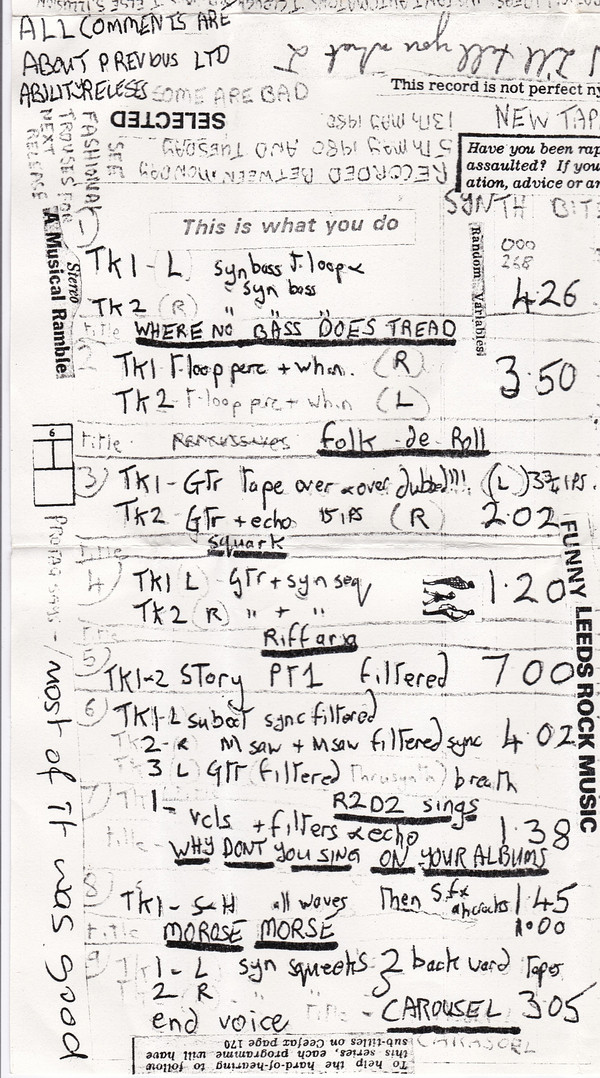 ALL COMMENTS ARE
ABOUT PREVIOUS LTD
ABILITY RELESES SOME ARE BAD
I I'll tell you what I
This record is not perfect
NEW TAP
SELECTED
13TH MAY 1980
5TH MAY 1980 AND TUESDAY
RECORDED BETWEEN MONDAY
Have you been rap
assaulted? If you
ation, advice or ar
FASHIONAL
TROUSES FOR
NEXT
RELEASE
SEE
SYNTH BITE
This is what you do
Random Variables
000
268
Stereo
A Musical Ramble
1
TK1 - L syn bass T.loop &
syn bass
TK2 (R) " " "
4.26
title WHERE NO BASS DOES TREAD
TK1 T.loop perc + whin. (R)
3.50
TK2 - T.loop perc + whin (L)
6
title folk-de-Roll
3) TK1 - GTr Tape over & over dubbed!!! (L) 3¾ IPS.
TK2 GTr + echo 15 IPS (R) 2.02
title squark
4 TK1 L) GTr + syn seq 1.20
TK2 (R) " + "
title Riffaria
5 TK1-2 STory PT1 filtered 7 00
6 TK1-L suboct sync filtered
TK2-R M saw + M saw filtered sync 4.02
3 (L) GTr (filtered Thru synth) breath
R2D2 sings
7 1 - vcls + filters & echo 1.38
title - WHY DONT YOU SING ON YOUR ALBUMS
8 TK1 - S-H all waves Then S.fx 1.45
1.00
title MOROSE MORSE
9 TK 1 - L syn squeeks } 2 backward Tapes
2 R " "
title - CAROUSEL 3.05
end voice
CARASOEL
FUNNY LEEDS ROCK MUSIC
says - most of it was good
To help the hard-of-hearing to follow
this series, each programme will have
sub-titles on Ceefax page 170